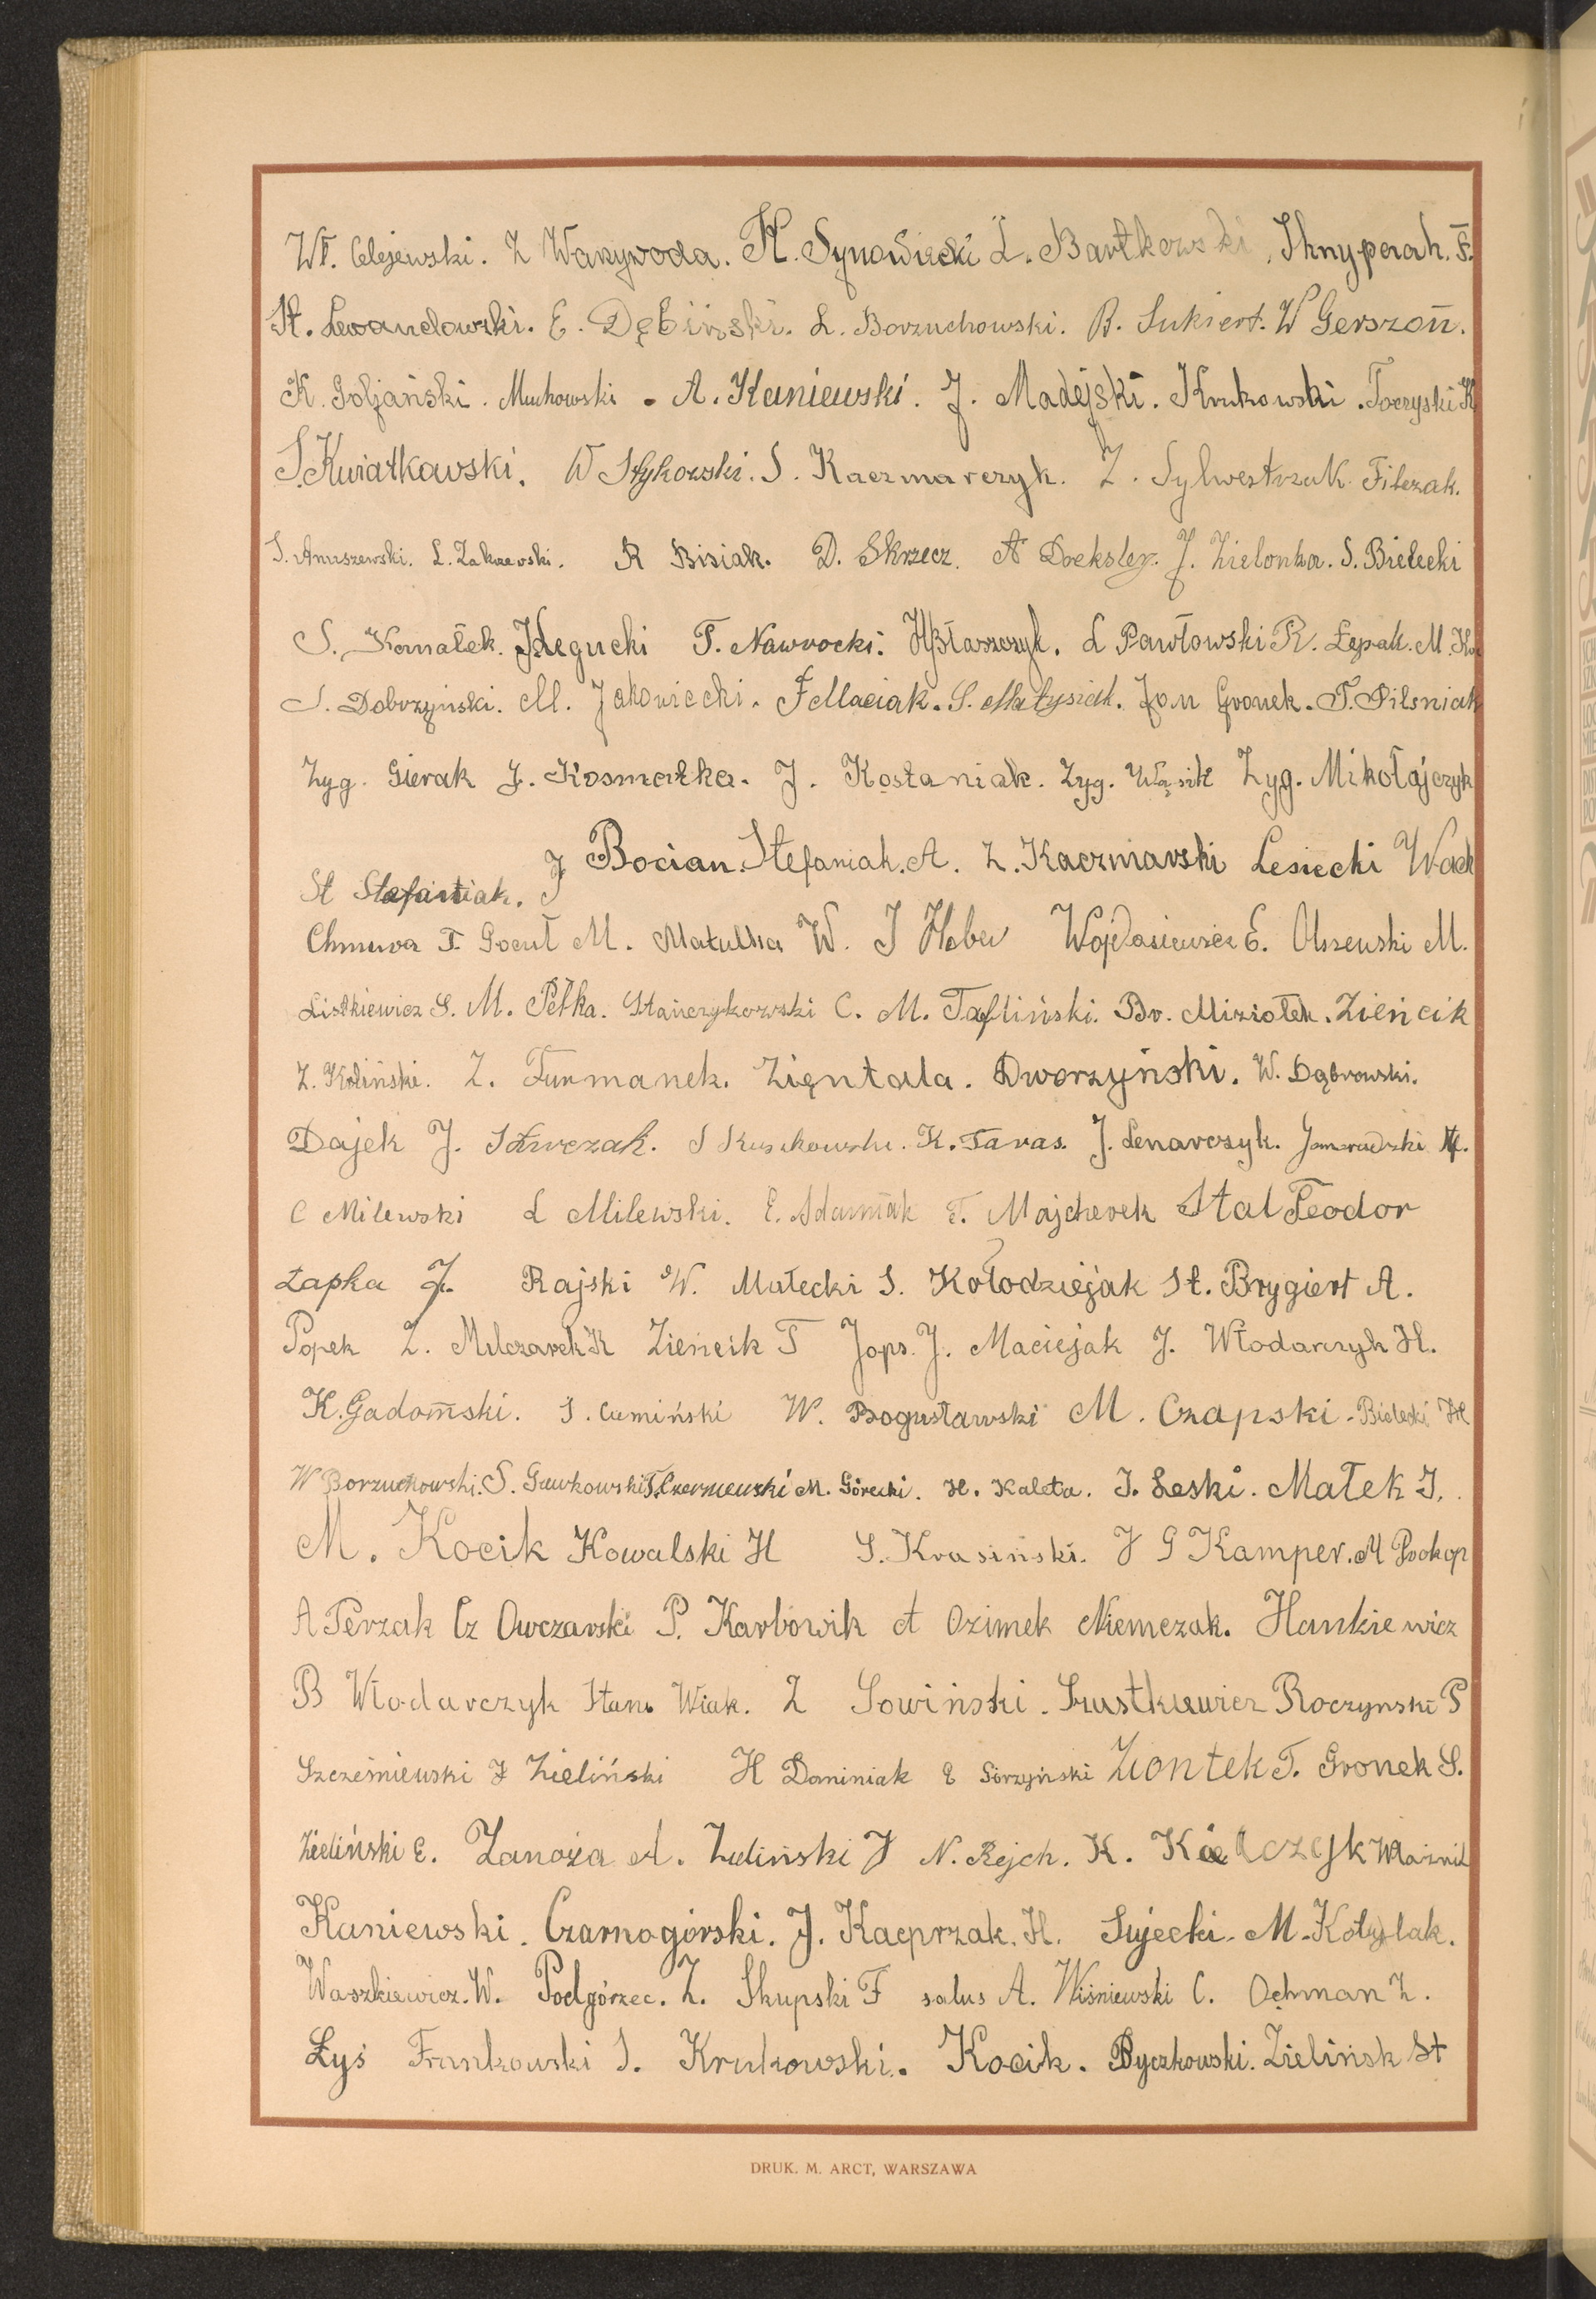 Wł. Olejewski. Z Warywoda. H. Synowiecki L. Bartkowski, Shnyperah. F.
St. Lewandowski. E. Dębiński. L. Borzuchowski. R. Sukiert. W Gerszon.
K. Goljański. Muchowski. A. Kaniewski. J. Madejski. Krukowski. Toczyski K
S. Kwiatkowski. W Stykowski. S. Kaczmarczyk. Z. Sylwestrzak Filczak.
S. Anuszewski. L. Zakrzewski. R Bisiak. D. Skrzecz. A Dreksler. J. Zielonka. S. Bielecki
S. Kowalek. T. Nawrocki. H Błaszczyk. L Pawłowski R. Łepak. M.
S. Dobrzyński. M. Jakowiecki. F Maciak. S. Matysiak. Jan Gronek. T. Pilśniak
Zyg. Gierak J. Kosmatka. J. Kostaniak. Zyg. Wąsik Zyg. Mikołajczyk
St Stefaniak. J Bocian. Stefaniak. A. Z. Kaczmarski Lesiecki Wacł
Chmura T. Gocuł M. Matulka W. J Haber Wojdasiewicz E. Olszewski M.
Listkiewicz S. M. Pełka. Stańczykowski C. M. Tafliński. Br. Miziołek. Zieńcik
Z. Koliński. Z. Furmanek. Ziętala. Dworzyński. W. Dąbrowski.
Dajek J. Sawczak. S Kuszkowski. K. Taras. J. Lenarczyk. M.
C Milewski L Milewski. E. Adamiak T. Majcherek Stal Teodor
Łapka J. Rajski W. Małecki S. Kołodziejak St. Brygiert A.
Popek Z. Milczarek K Zieńcik T Jops. J. Maciejak J. Włodarczyk H.
K. Gadomski. S. Cumiński W. Bogusławski M. Czapski. Bielecki H
W Borzuchowski. S. Gawkowski T. Czerniewski M. Górecki. H. Kaleta. J. Leski. Małek J.
M. Kocik Kowalski H S. Krasiński. J G Kamper. M Prokop
A Perzak Cz Owczarski P. Karbowik A Ozimek Niemczak. Hankiewicz
B Włodarczyk Stan. Wiak. Z Sowiński. Szustkiewicz Roczynski P
Szcześniewski J Zieliński H Dominiak E Sirzyński Ziontek T. Gronek S.
Zieliński E. Zanoza A. Zieliński J N. Rejch. K. Kielczyk Właźnik
Kaniewski. Czarnogórski. J. Kacprzak. H. Sujecki. M. Kołyślak.
Waszkiewicz. W. Podgórzec. Z. Skupski F salus A. Wiśniewski C. Ochman Z.
Łyś Frankowski S. Krukowski. Kocik. Byczkowski. Zielińsk St
DRUK. M. ARCT, WARSZAWA